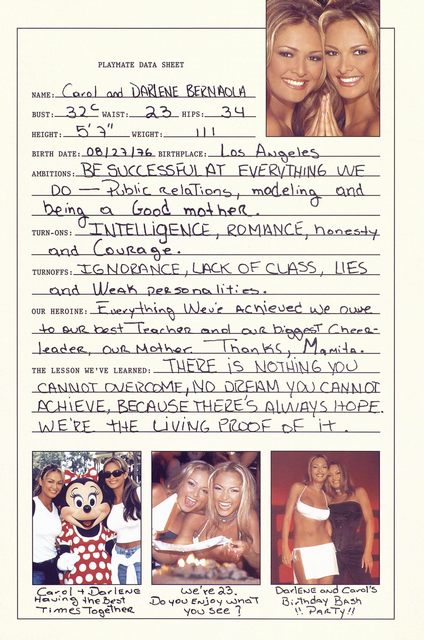 PLAYMATE DATA SHEET
NAME: Carol and DARLENE BERNAOLA
BUST: 32C WAIST: 23 HIPS: 34
HEIGHT: 5'3" WEIGHT: 111
BIRTH DATE: 08/27/76 BIRTHPLACE: Los Angeles
AMBITIONS: BE SUCCESSFUL AT EVERYTHING WE
DO — Public Relations, modeling and
being a Good mother.
TURN-ONS: INTELLIGENCE, ROMANCE, honesty
and Courage.
TURNOFFS: IGNORANCE, LACK OF CLASS, LIES
and Weak personalities.
OUR HEROINE: Everything We've achieved we owe
to our best Teacher and our biggest Cheer-
leader, our Mother. Thanks, Mamita.
THE LESSON WE'VE LEARNED: THERE is NOTHING YOU
CANNOT OVERCOME, NO DREAM YOU CANNOT
ACHIEVE, BECAUSE THERE'S ALWAYS HOPE.
WE'RE THE LIVING PROOF OF it.
Carol + Darlene
Having the Best
Times Together
We're 23.
Do you Enjoy what
you see?
Darlene and Carol's
Birthday Bash
!! PARTY!!